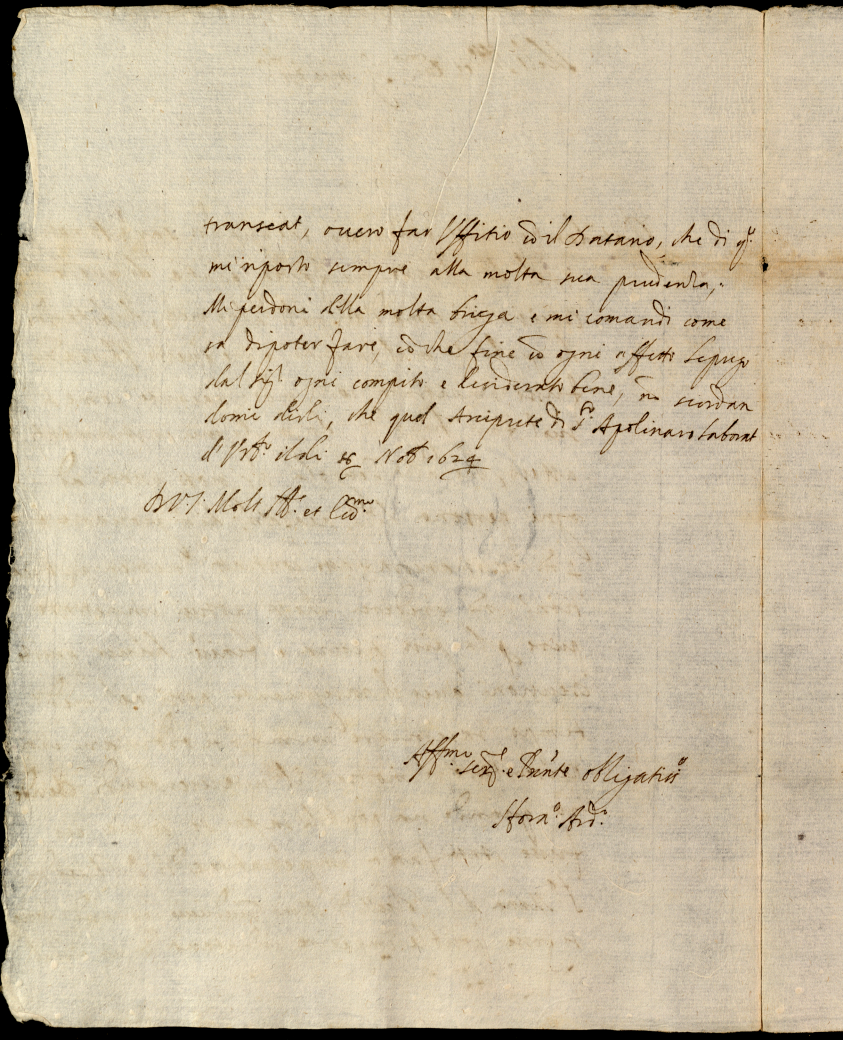 transeat, overo far l'ffitio cō il Datario, che di q.ᵗᵒ
mi riporto sempre alla molta sua prudenza,
Mi perdoni della molta briga e mi comandi come
sa di poter fare, cō che fine cō ogni affetto le prego
dal Sig.ʳ ogni compito e desiderato bene, nō scordan
domi dirli, che quel Arciprete di S.ᵗᵒ Apolinaro
d' Urb.º il di Nob 1624
D V S. Molt Ill.ʳ et Ecc.ᵐᵃ
Aff.ᵐᵒ ser.ʳᵉ e Par̃nte obligatiss.º